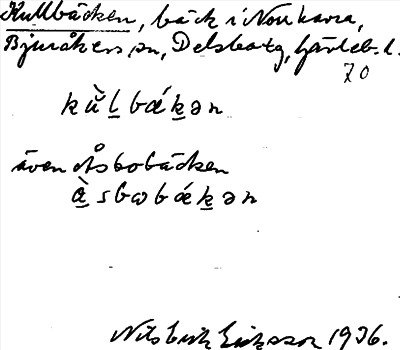 Kullbäcken, bäck i Norrhavra,
Bjuråkers sn, Delsbo tg, Gävleb. l.
70
kù̀l̲bák̲ən
även Åsbobäcken
à̲sbobák̲ən
Nils Erik Eriksson 1936.